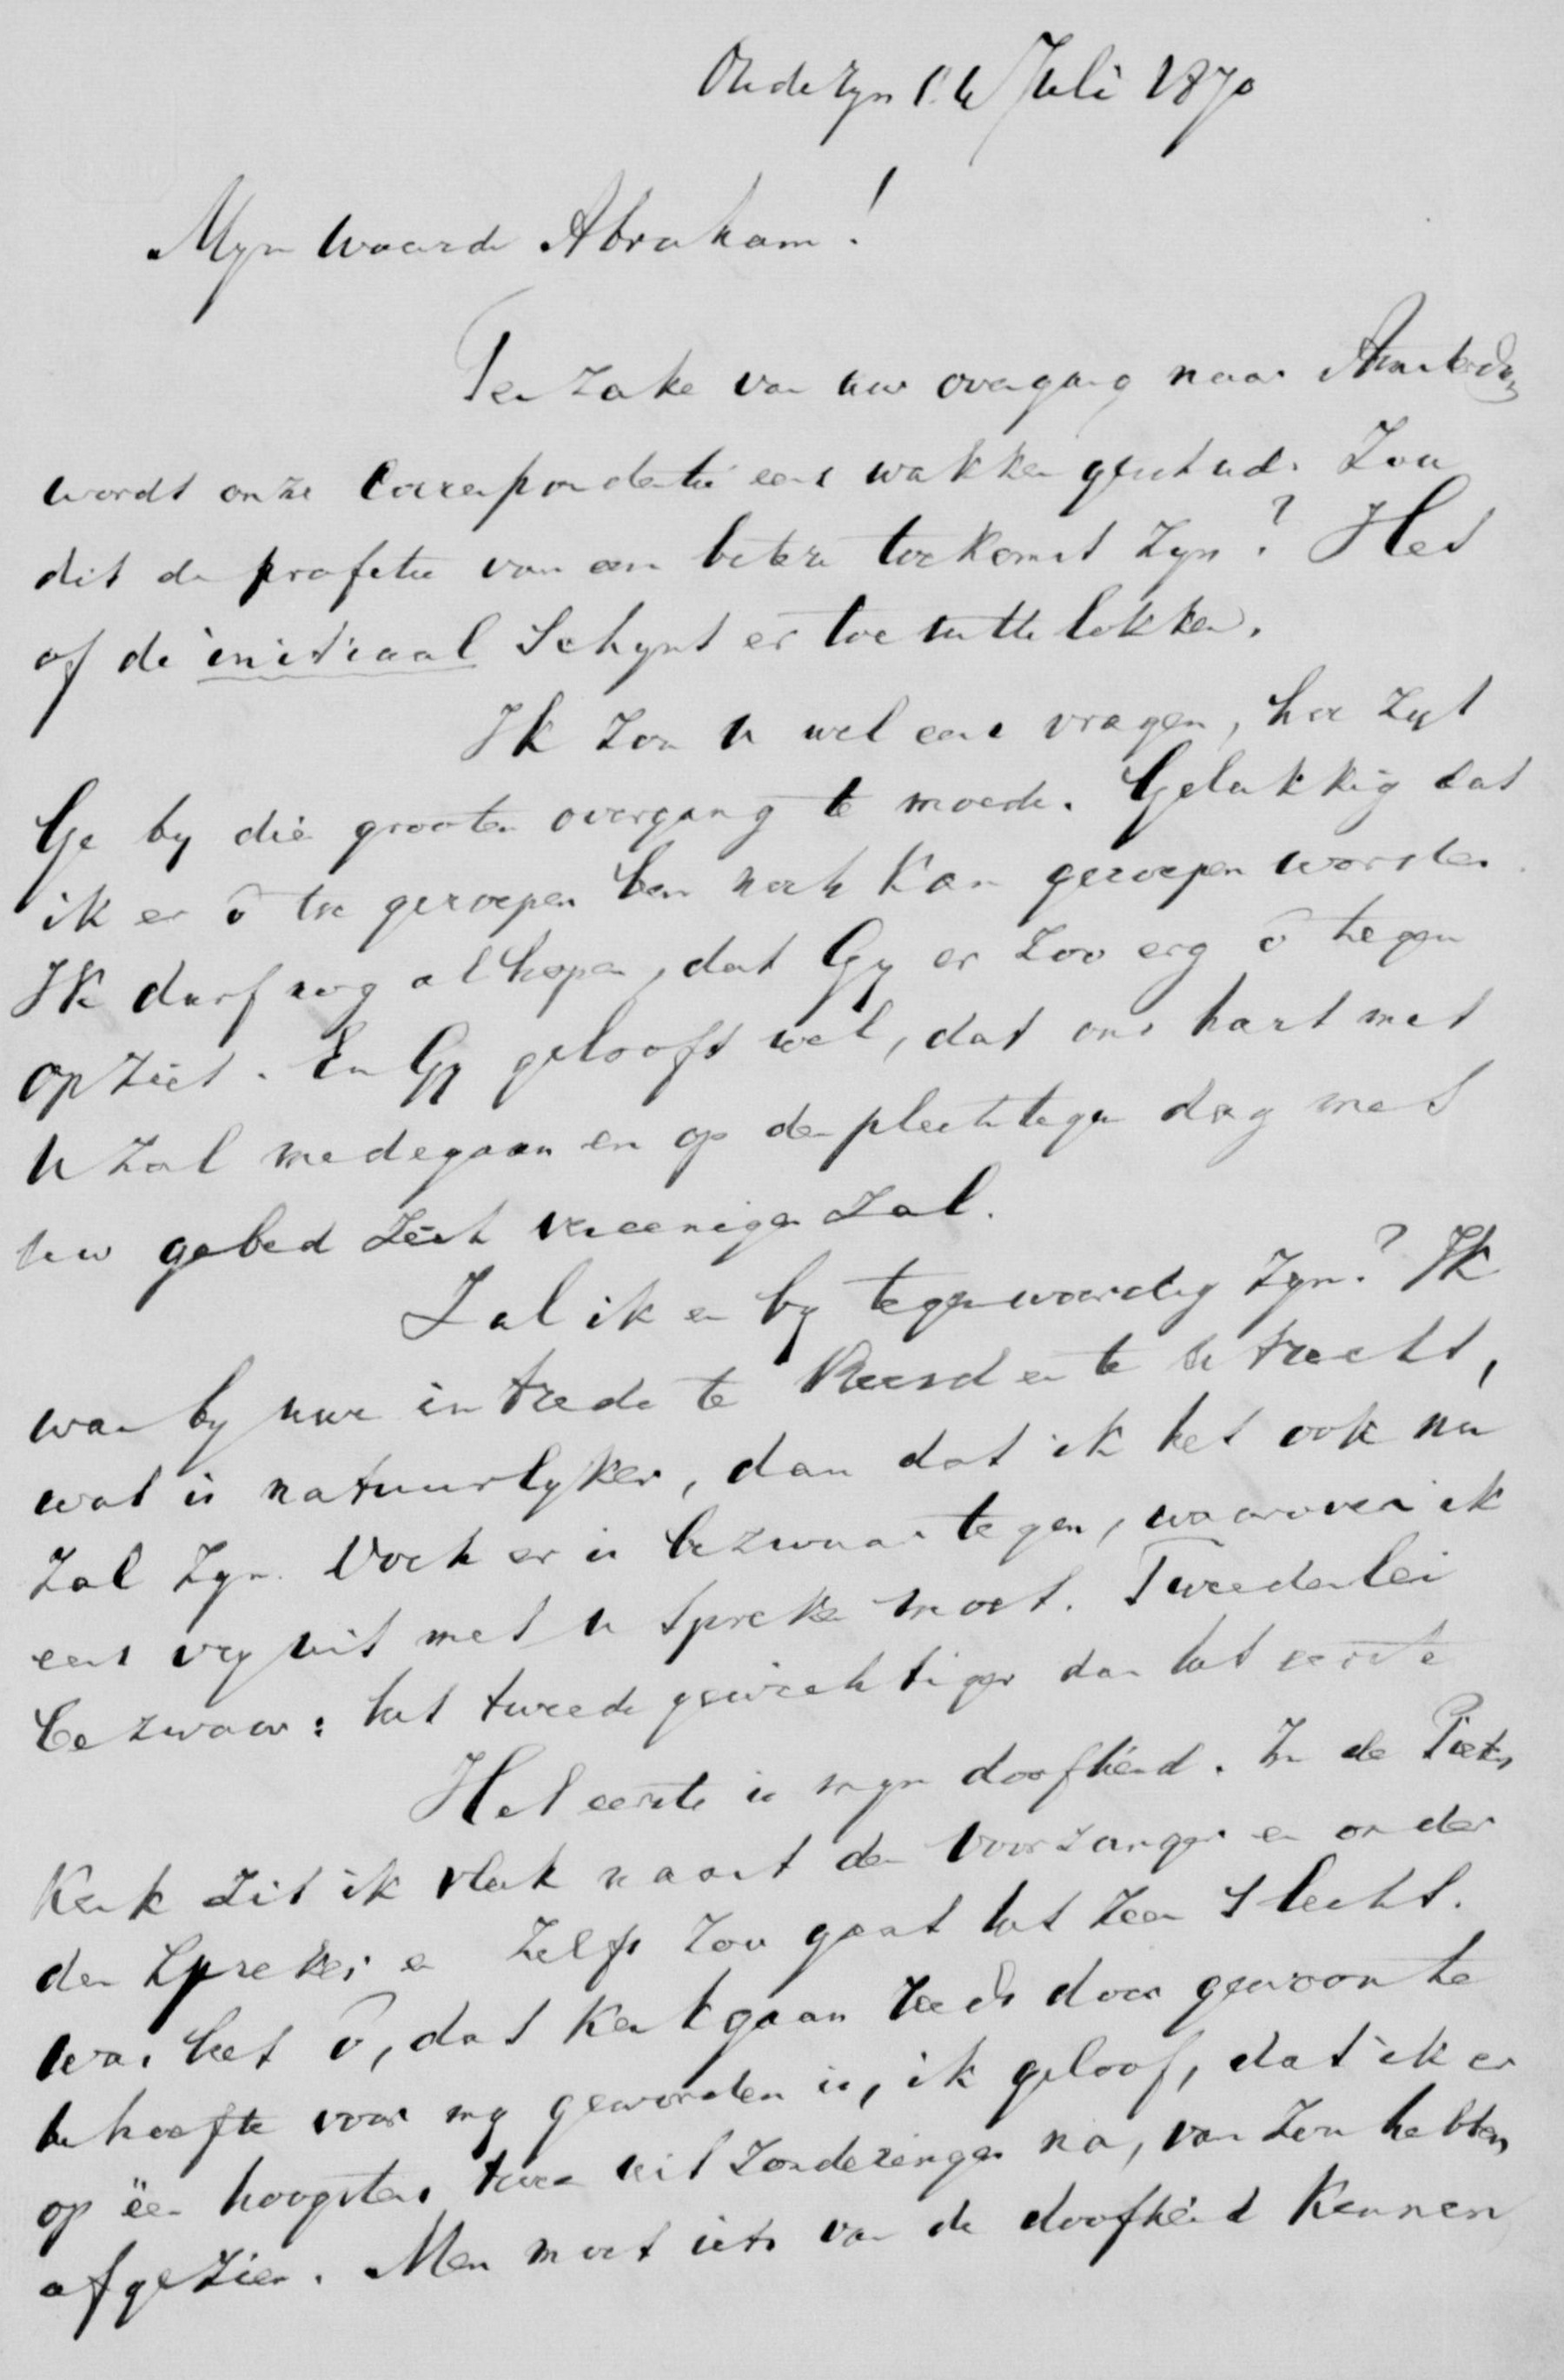 Juli 1870
Myn waarde Abraham!
Ter zake van uw overgang naar Amsterdam
wordt onze correspondentie eens wakker geschud. Zou
dit de profetie van een betere toekomst zyn? Het
of de initiaal schynt er toe uit te lokken.
Ik zou u wel eens vragen, hoe zyt
Ge by die grooten overgang te moede. Gelukkig dat
ik er ō toe geroepen ben noch kan geroepen worden.
Ik durf nog al hopen, dat Gy er zoo erg ō tegen
opziet. En Gy gelooft wel, dat ons hart met
u zal medegaan en op den plechtigen dag met
uw gebed zich vereenigen zal.
Zal ik er by tegenwoordig zyn? Ik
was by uwe intrede te Beesd en te Utrecht,
wat is natuurlyker, dan dat ik het ook nu
zal zyn. Doch er is bezwaar tegen, waarover ik
eens vry uit met u spreken moet. Tweederlei
bezwaar: het tweede gewichtiger dan het eerste
Het eerste is myn doofheid. In de Pieters
Kerk zit ik vlak naast den voorzanger en onder
den spreker en zelfs zou gaat het zeer slecht.
Was het ō, dat kerkgaan reeds door gewoonte
behoefte voor my geworden is, ik geloof, dat ik er
op één hoogstens twee uitzonderingen na, van zou hebben
afgezien. Men moet iets van de doofheid kennen